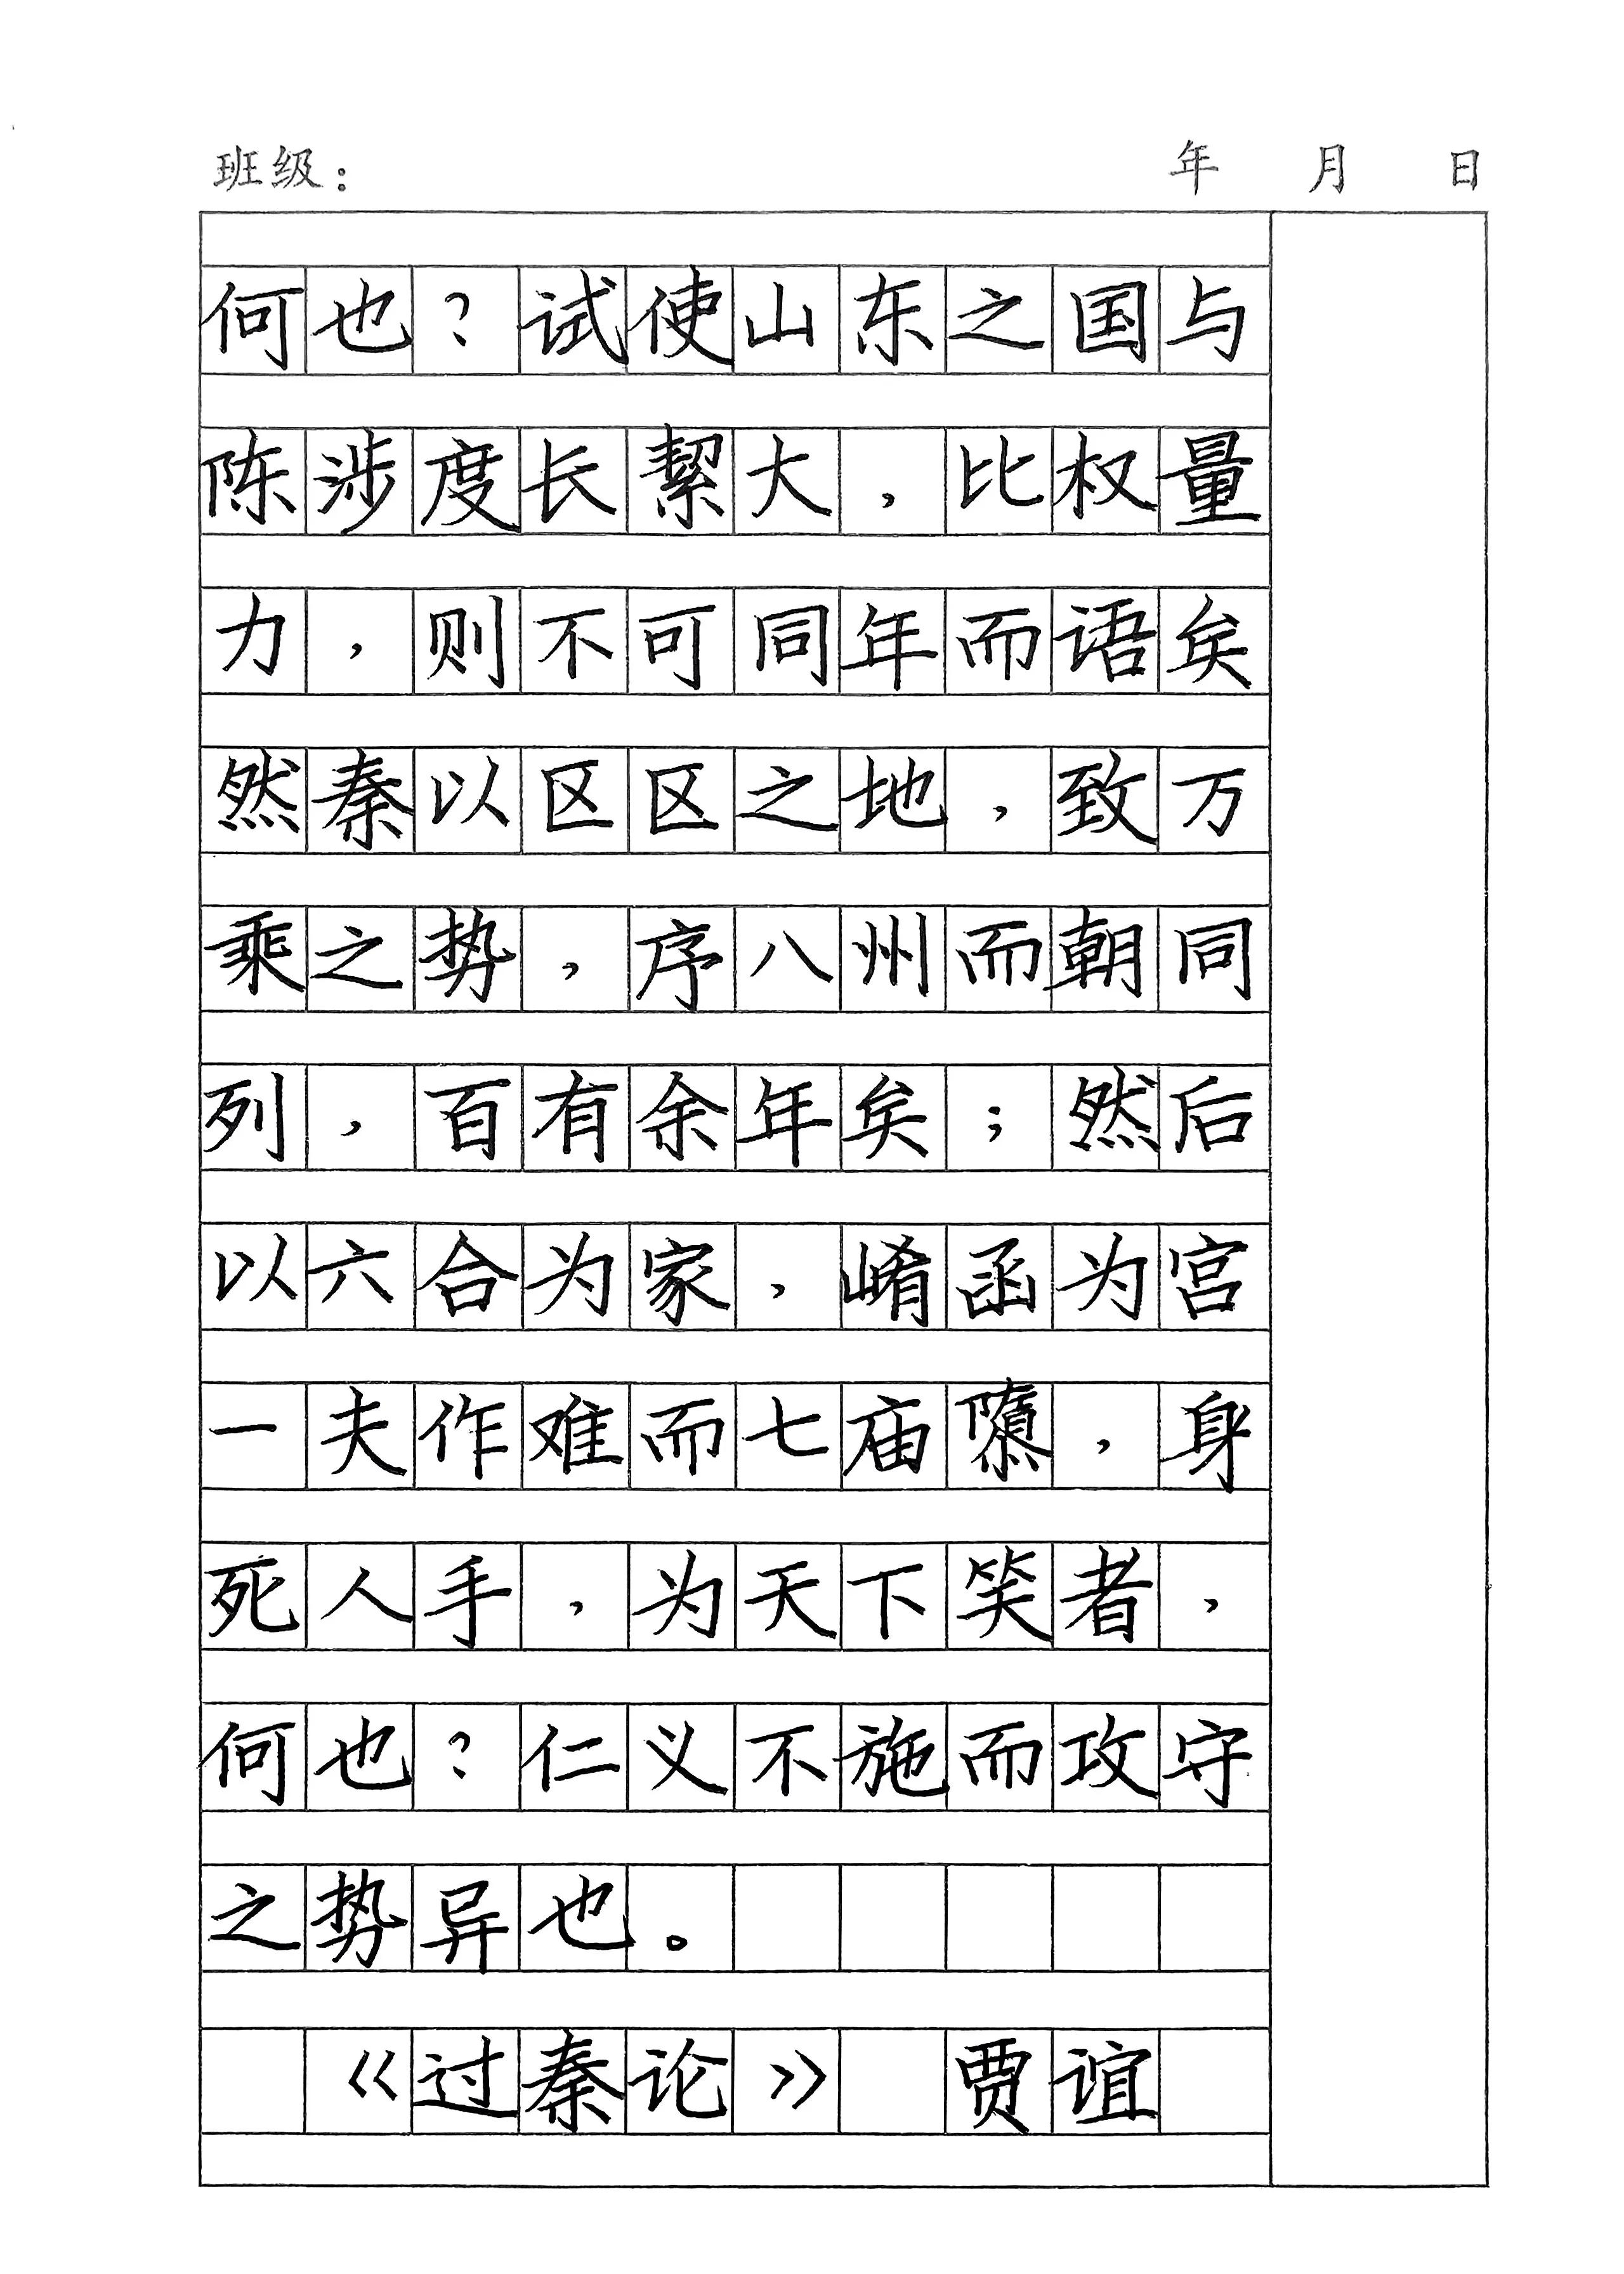 班级： 年 月 日
何也？试使山东之国与
陈涉度长絜大，比权量
力，则不可同年而语矣
然秦以区区之地，致万
乘之势，序八州而朝同
列，百有余年矣；然后
以六合为家，崤函为宫
一夫作难而七庙隳，身
死人手，为天下笑者，
何也？仁义不施而攻守
之势异也。
《过秦论》 贾谊